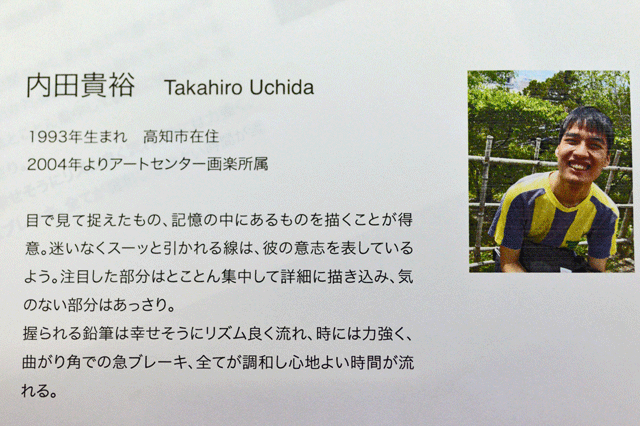 内田貴裕　Takahiro Uchida
1993年生まれ　高知市在住
2004年よりアートセンター画楽所属
目で見て捉えたもの、記憶の中にあるものを描くことが得
意。迷いなくスーッと引かれる線は、彼の意志を表している
よう。注目した部分はとことん集中して詳細に描き込み、気
のない部分はあっさり。
握られる鉛筆は幸せそうにリズム良く流れ、時には力強く、
曲がり角での急ブレーキ、全てが調和し心地よい時間が流
れる。